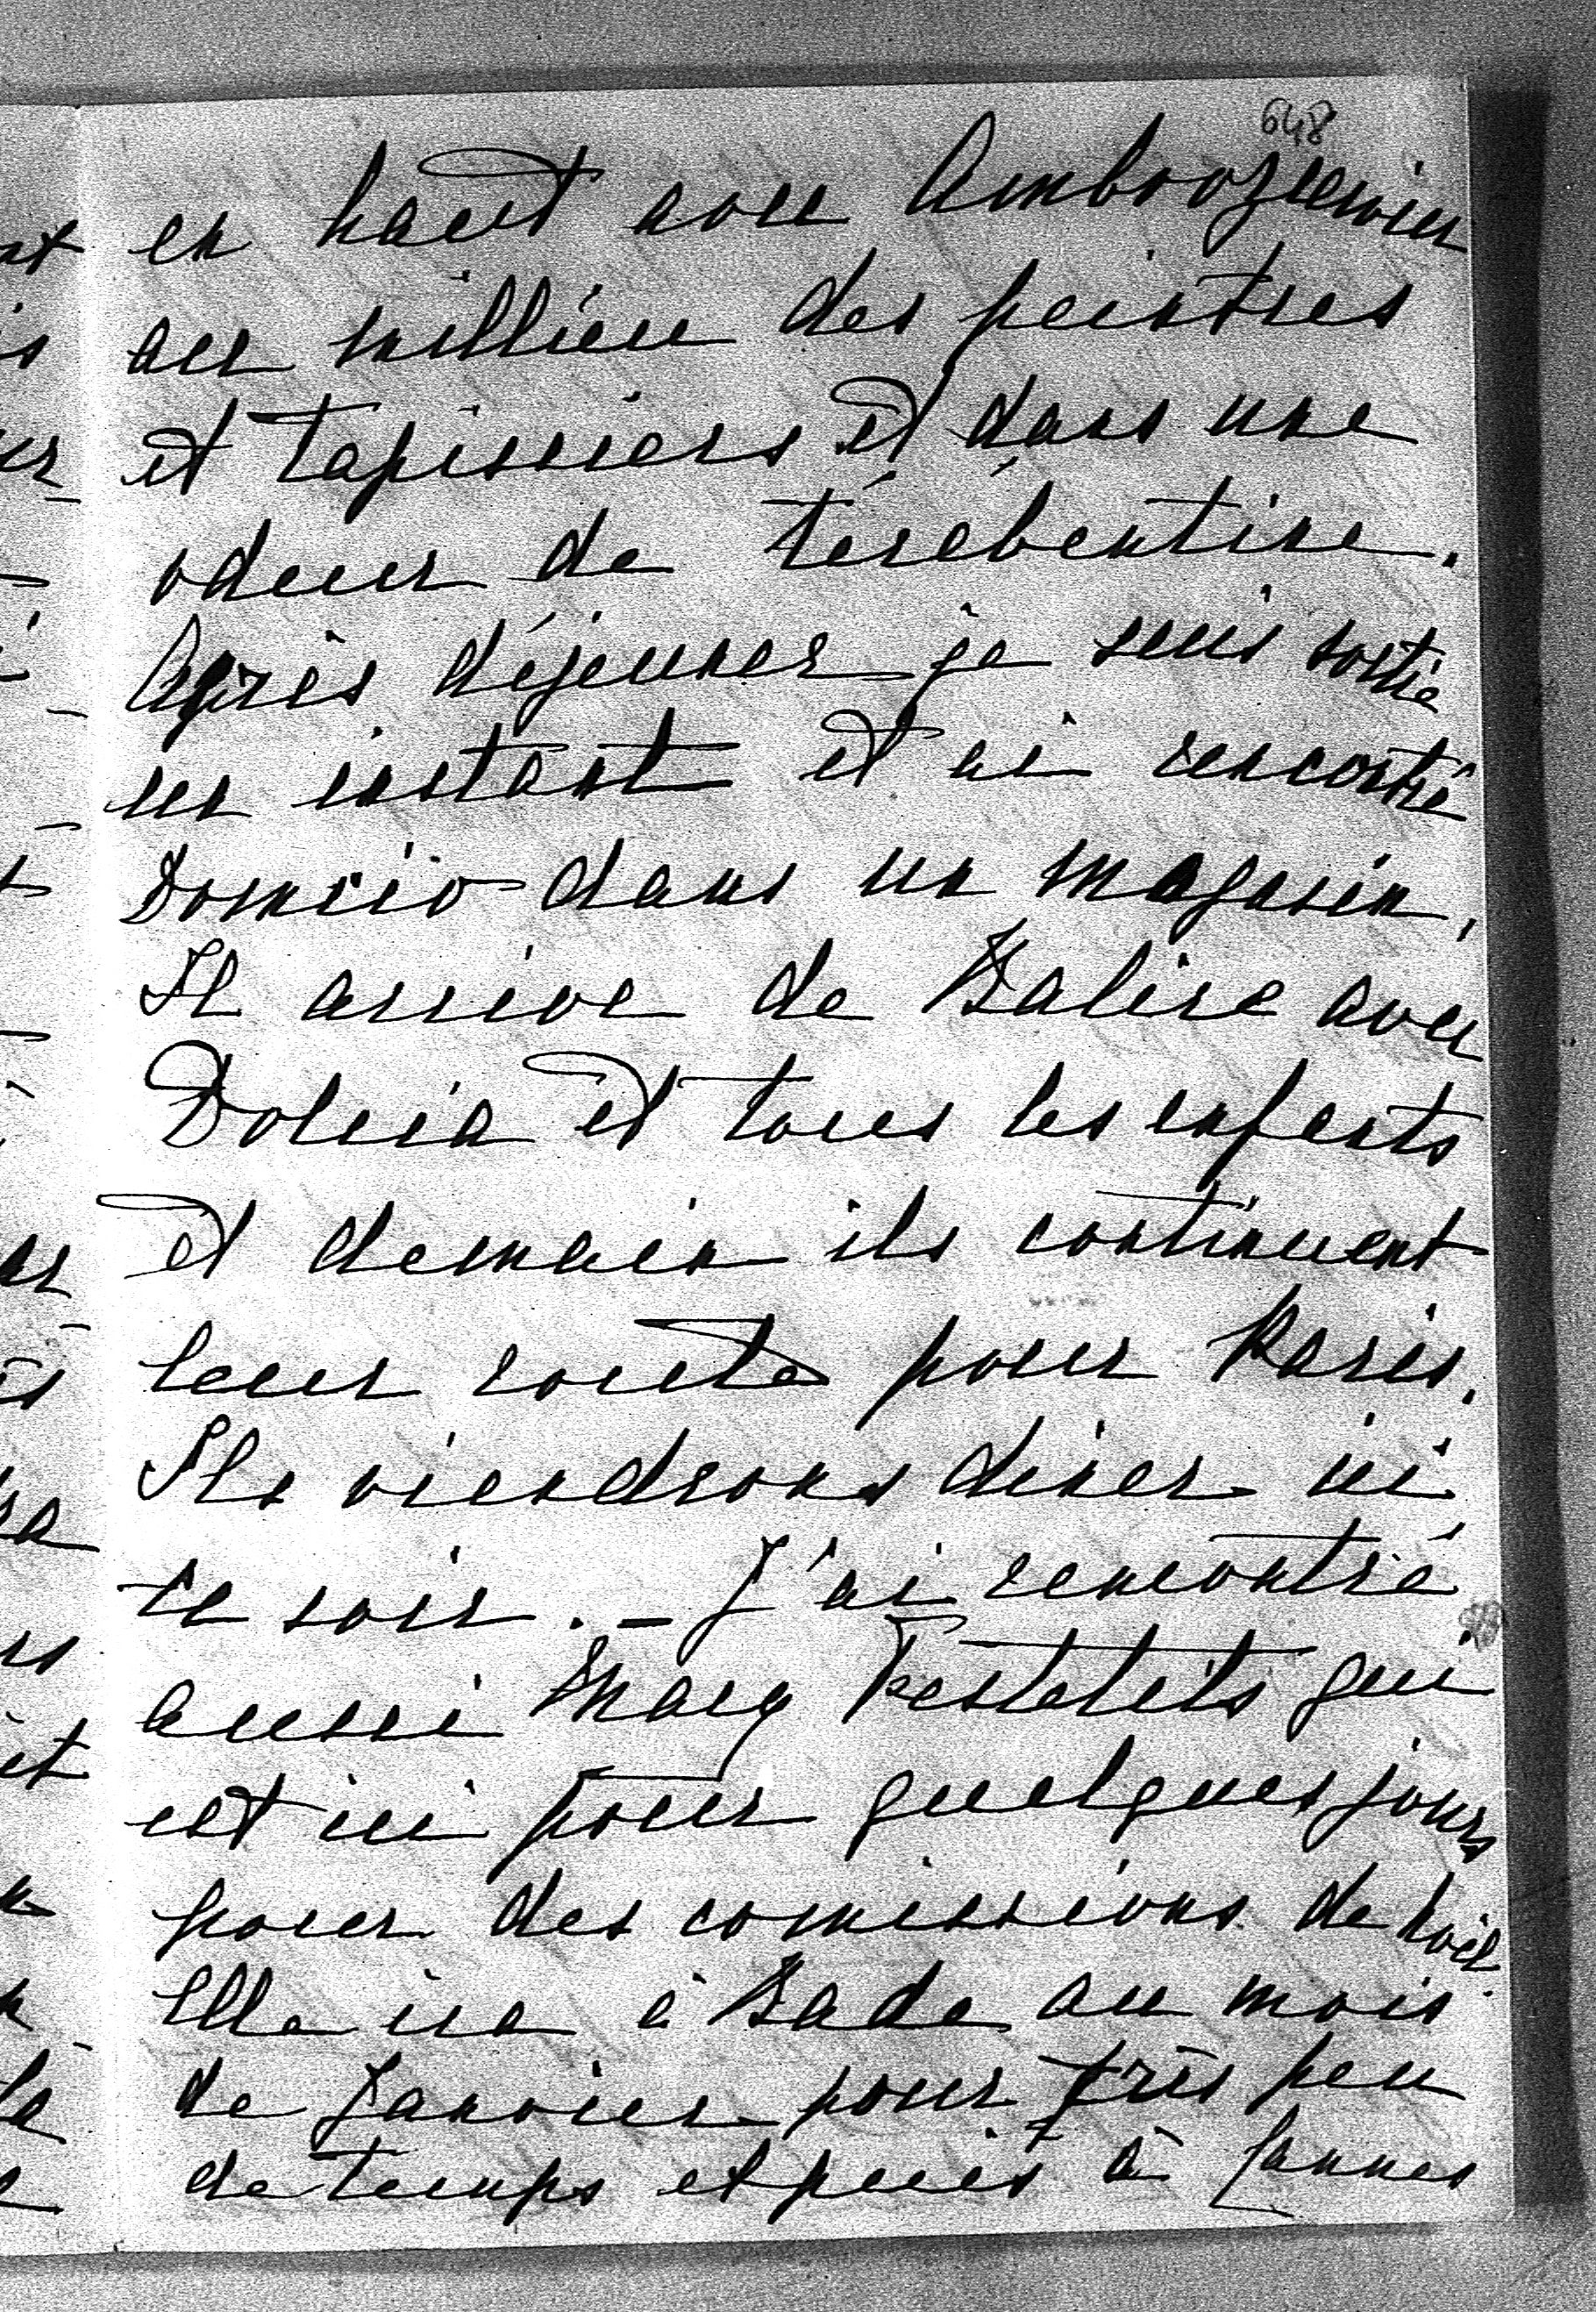 648
en haut avec Ambroziewicz
au millieu des peintres
et tapissiers et dans une
odeur de térébentine.
Après déjeuner je suis sortie
un instant et ai rencontré
Domcio dans un magasin,
Il arrive de Balice avec
Dolcia et tous les enfants
et demain ils continuent
leur route pour Paris.
Ils viendrons diner ici
ce soir. – J'ai rencontré
aussi Mary Festetits qui
est ici pour quelques jours
pour des comissions de Noël.
Elle ira à Bade au mois
de Janvier pour très peu
de temps et puis à Cannes